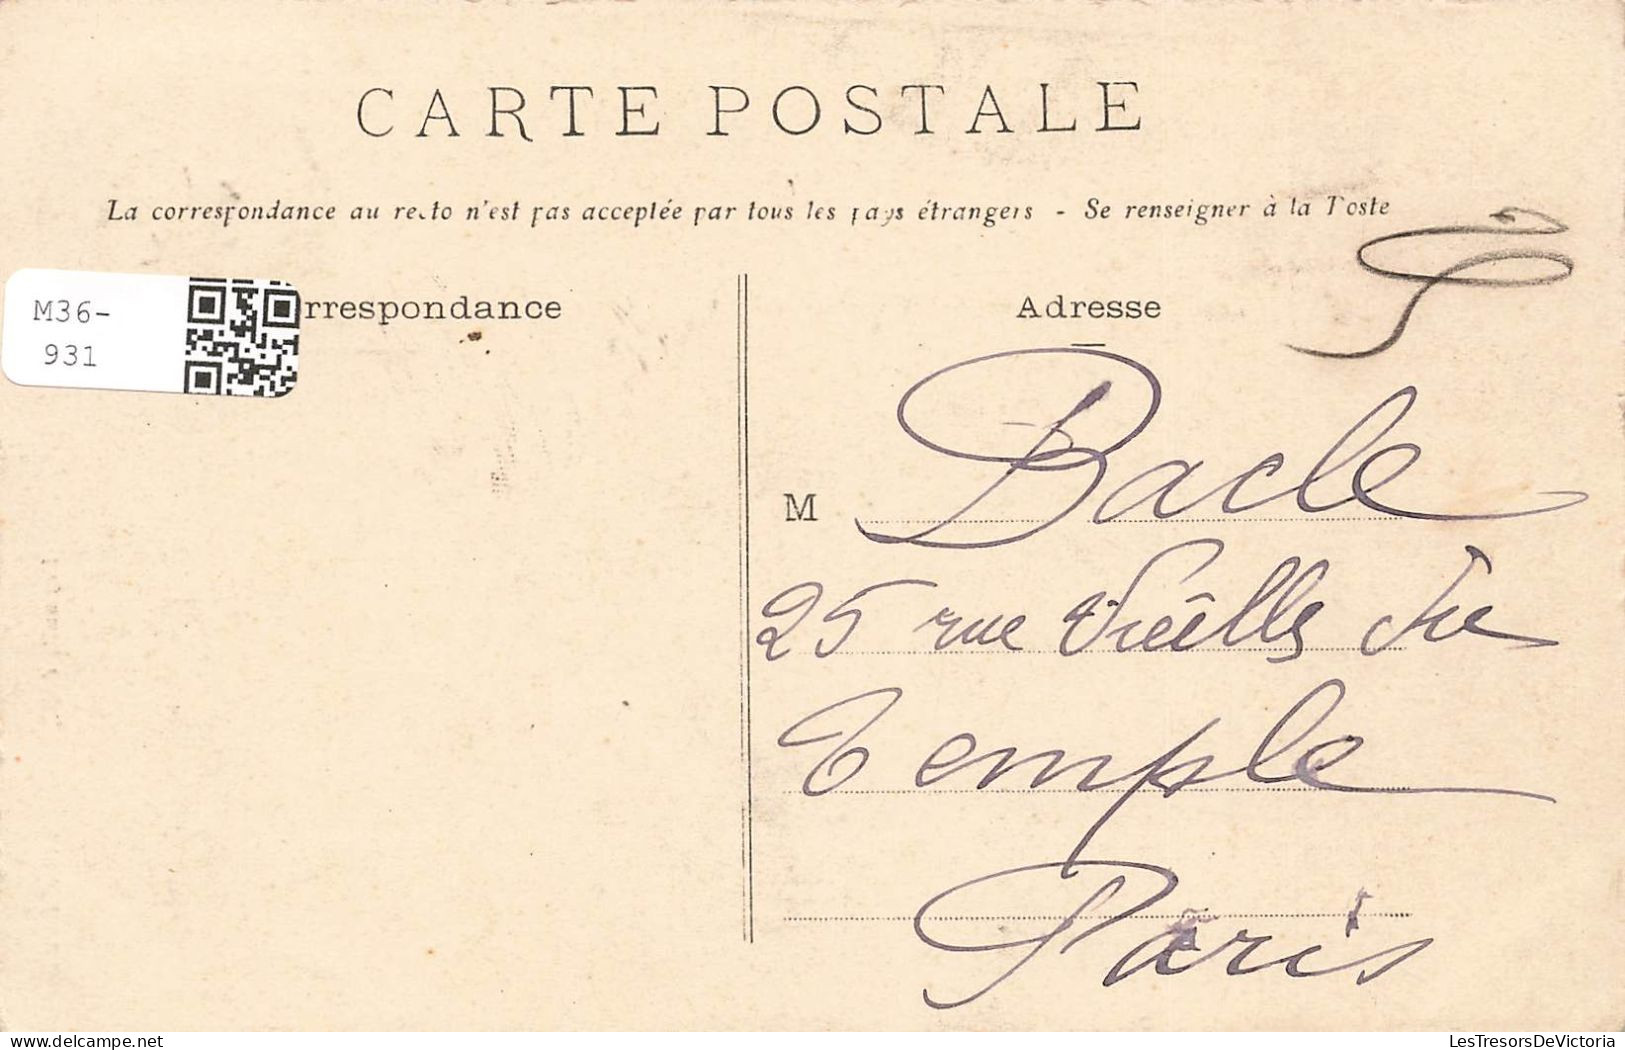 CARTE POSTALE
La correspondance au recto n'est pas acceptée par tous les pays étrangers - Se renseigner à la Poste
M36-
931
rrespondance
Adresse
M Bacle
25 rue Vieille du
Temple
Paris
delcampe.net
LesTresorsDeVictoria